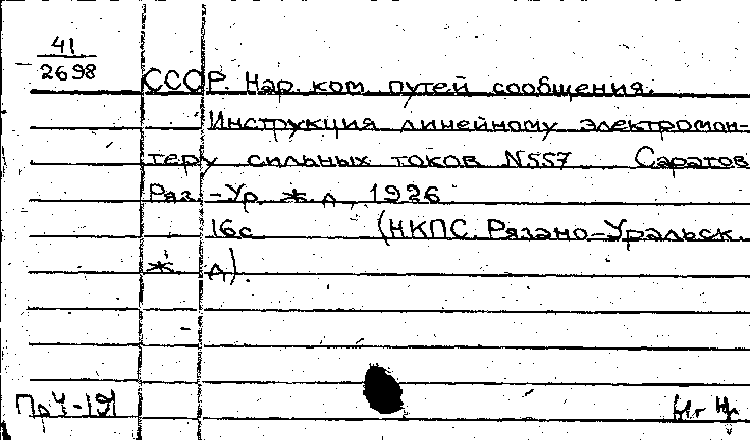 41
2698
СССР. Нар. ком. путей сообщения.
Инструкция линейному электромон-
теру сильных токов N557 Саратов
Ряз.-Ур. ж. д., 1926
16с (НКПС. Рязано-Уральск.
ж. д).